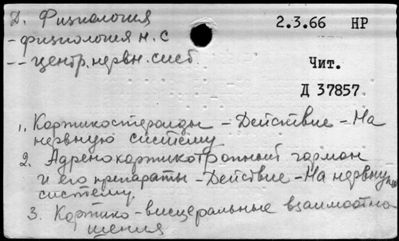 Д. Физиология
2.3.66 НР
- физиология н. с
-- центр. нервн. сист.
Чит.
Д 37857
1. Кортикостероиды - Действие - На
нервную систему
2. Адренокортикотропный гормон
и его препараты - Действие - На нервную
систему
3. Кортико-висцеральные взаимоотно
шения